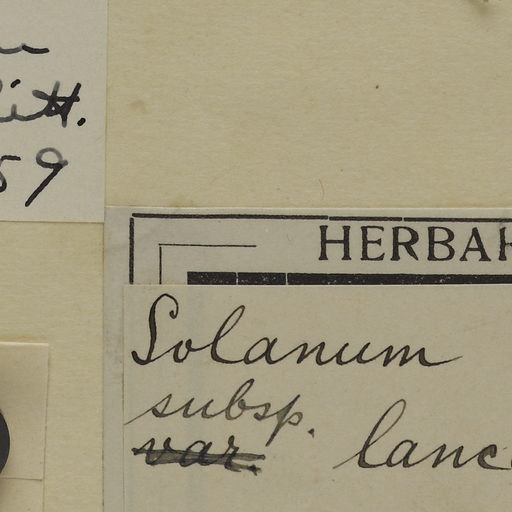 59
HERBAR
Solanum
subsp.
var. lanc